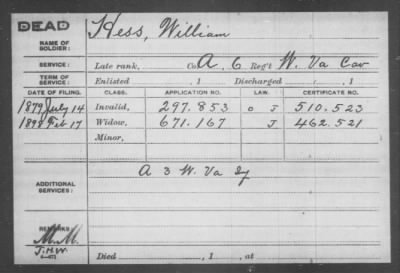 DEAD
NAME OF SOLDIER: Hess, William
SERVICE: Late rank, Co. A, 6 Reg't W. Va Cav
TERM OF SERVICE: Enlisted , 1 Discharged , 1
DATE OF FILING. CLASS. APPLICATION NO. LAW. CERTIFICATE NO.
1879 July 14 Invalid, 297.853 J 510.523
1898 Feb 17 Widow, 671.167 J 462.521
Minor,
ADDITIONAL SERVICES: A 3 W. Va
REMARKS: M.M.
J.H.W.
Died , 1 , at